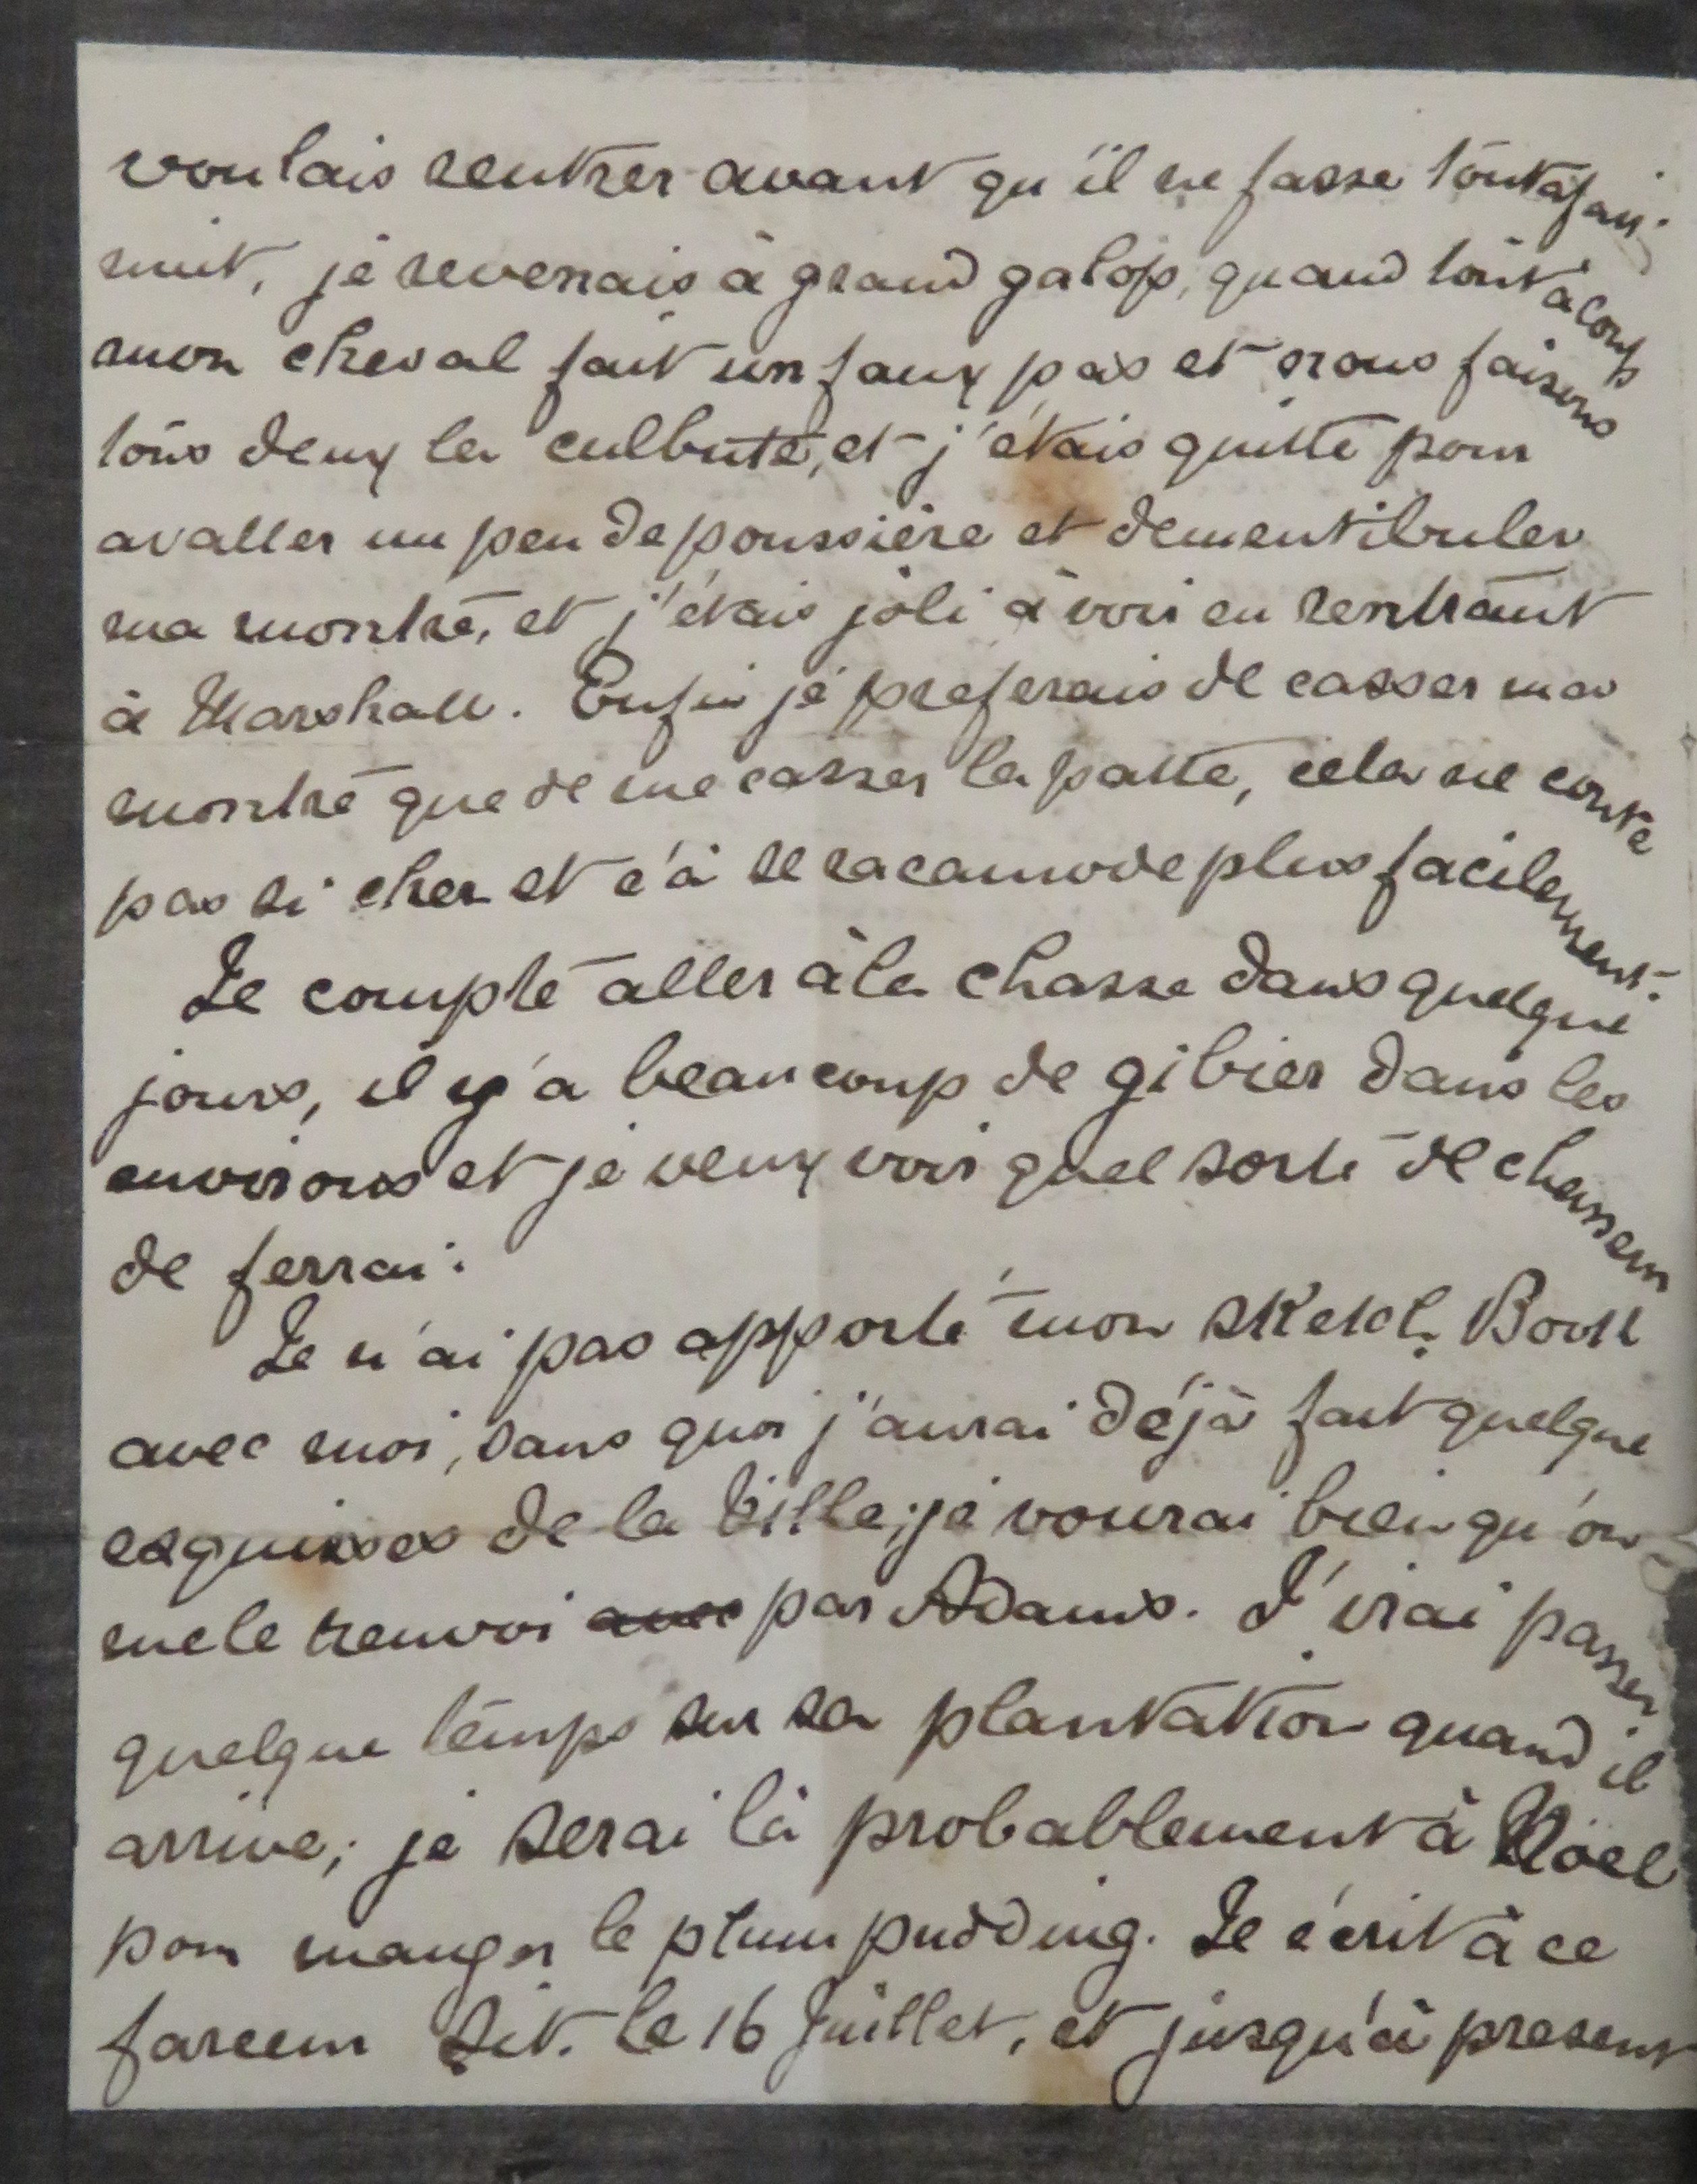 voulais rentrer avant qu'il ne fasse tout à fait
nuit, je revenais à grand galop, quand tout à coup
mon cheval fait un faux pas et nous faisons
tous deux la culbute, et j'étais quitte pour
avaller un peu de poussière et dementibuler
ma montre, et j'étais joli à voir en rentrant
à Marshall. Enfin je preferais de casser ma
montre que de me casser la patte, cela ne coute
pas si cher et c'à se racamode plus facilement.
Je compte aller à la chasse dans quelque
jours, il y'a beaucoup de gibier dans les
environs et je veux voir quel sorte de chasseur
je ferrai.
Je n'ai pas apporté mon sketch Book
avec moi, sans quoi j'aurai déjà fait quelque
esquisses de la Ville; je vourai bien qu'on
me le renvoi avec par Adams. J'irai passer
quelque temps sur sa plantation quand il
arrive; je serai là probablement à Noël
pour manger le plum pudding. Je écrit à ce
farceur le 16 Juillet, et jusqu'à present